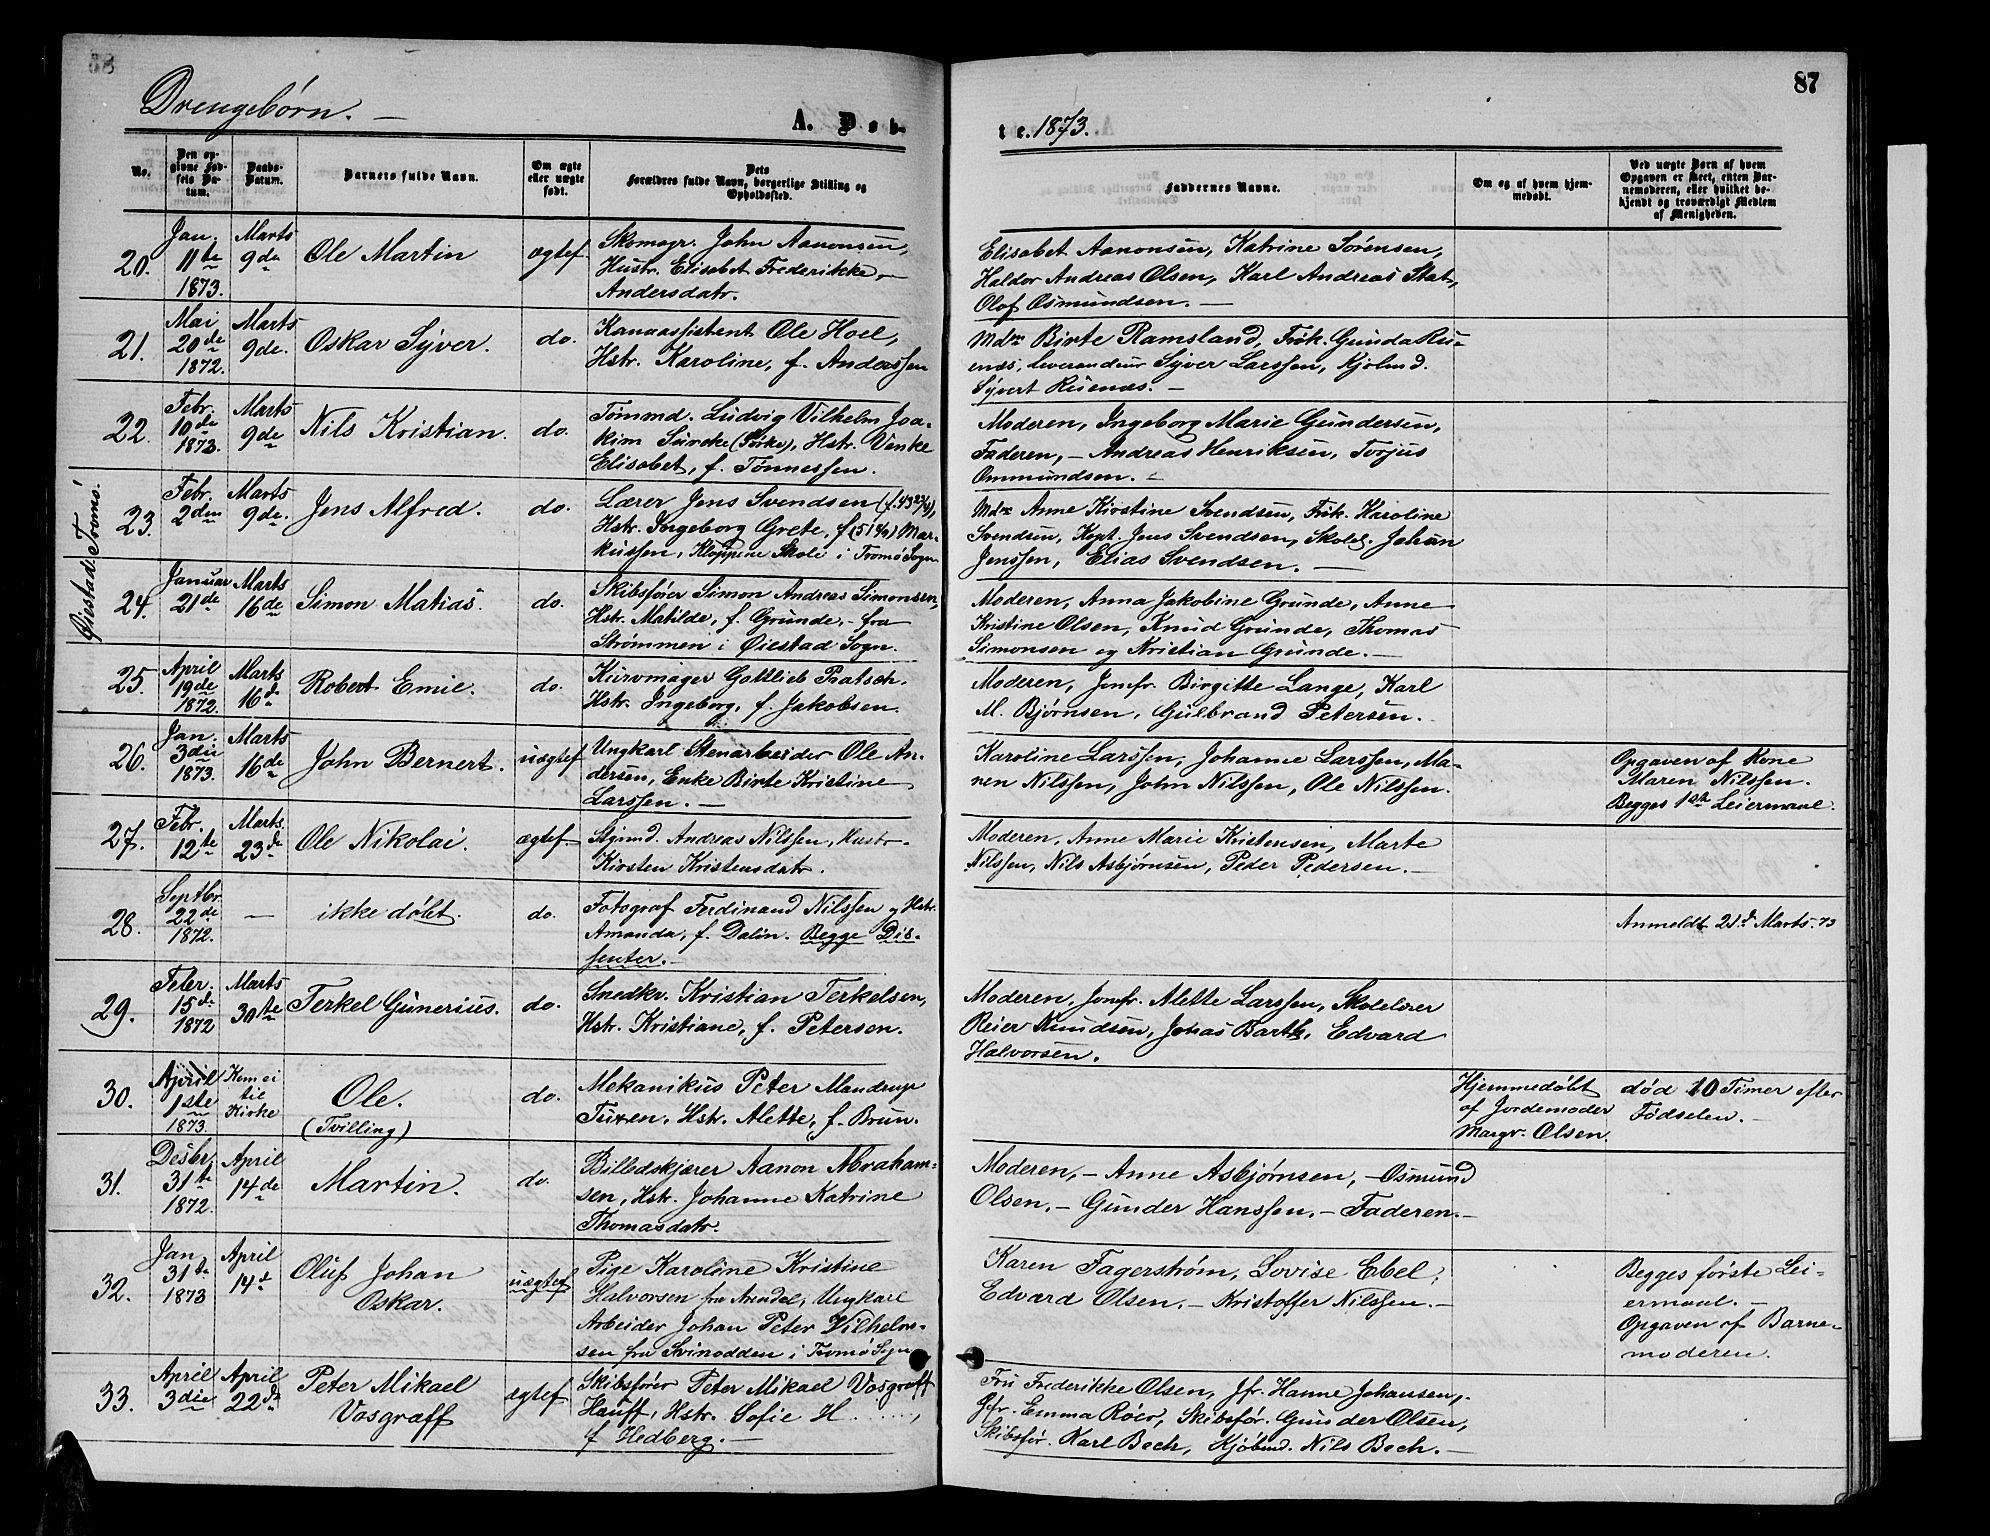 87
Drengebørn. —
A. Døb-
te. 1873.
No.
Den op-
givne Fød-
sels Da-
tum.
Daabs-
Datum.
Barnets fulde Navn.
Om ægte
eller uægte
født.
Dets
Forældres fulde Navn, borgerlige Stilling og
Opholdssted.
Faddernes Navne.
Om og af hvem hjem-
medøbt.
Ved uægte Børn af hvem
Opgaven er skeet, enten Bar-
nemoderen, eller hvilket be-
kjendt og troværdigt Medlem
af Menigheden.
20.
Jan.
11te
1873.
Marts
9de
Ole Martin
ægtef.
Skomagr. John Aanonsen,
Hustr. Elisabet Frederikke
Andersdatr.
Elisabet Aanonsen, Katrine Sørensen,
Haldor Andreas Olsen, Karl Andreas
Olof Osmundsen. —
21.
Mai
20de
1872.
Marts
9de.
Oskar Syver.
do.
Ole Hoel,
Hstr. Karoline, f. Anderssen
Mde Birte Ramsland, Frk. Gunda Ru-
enæs, Leverandeur Syver Larssen, Kjøbmd.
Syvert Ruenæs. —
22.
Febr.
10de
1873.
Marts
9de
Nils Kristian.
do.
Tømmd. Ludvig Vilhelm Joa-
kim (Sörke), Hstr. Venke
Elisabet, f. Tønnessen.
Moderen, Ingeborg Marie Gundersen,
Faderen, — Andreas Henriksen, Torjus
Ommundsen. —
Tromö.
23.
Febr.
2den
Marts
9de.
Jens Alfred.
do.
Lærer Jens Svendsen (f. 43 23/4),
Hstr. Ingeborg Grete, f. (51 4/1) Mar-
kussen, Kloppene Skole i Tromø Sogn
Mde Anne Kirstine Svendsen, Frk. Karoline
Svendsen, Kapt. Jens Svendsen, Skolel. Johan
Jenssen, Elias Svendsen. —
Øiestad
24.
Januar
21de
Marts
16de
Simon Matias.
do.
Skibsfører Simon Andreas Simonsen,
Hstr. Matilde, f. Grunde, - fra
Strømmen i Øiestad Sogn.
Moderen, Anna Jakobine Grunde, Anne
Kristine Olsen, Knud Grunde, Thomas
Simonsen og Kristian Grunde. —
25.
April
19de
1872.
Marts
16d
Robert Emil.
do.
Kurvmager Gottlieb Pratsch.
Hstr. Ingeborg, f. Jakobsen.
Moderen, Jomfr. Birgitte Lange, Karl
M. Bjørnsen, Gulbrand Petersen.
26.
Jan.
3die
1873.
Marts
16de
John Bernert.
uægtef
Ungkarl Stenarbeider Ole An-
dersen, Enke Birte Kristine
Larssen. —
Karoline Larssen, Johanne Larssen, Ma-
ren Nilssen, John Nilssen, Ole Nilssen.
Opgaven af Kone
Maren Nilssen.
Begges 1ste Leiermaal.
27.
Febr.
12te
Marts
23d
Ole Nikolai.
ægtef.
Styrmd. Andreas Nilssen, Hustr.
Kirsten Kristensdatr.
Moderen, Anne Marie Kristensen, Marte
Nilssen, Nils Asbjørnsen, Peder Pedersen. —
28.
Septbr
22de
1872.
—
ikke døbt.
do.
Fotograf Ferdinand Nilssen og Hstr.
Amanda, f. Dalin. Begge Dis-
senter. —
Anmeldt 21d Marts. 73
29.
Feber.
15d
1872
Marts
30te
Terkel Gunerius.
do.
Snedkr. Kristian Terkelsen,
Hstr. Kristiane, f. Petersen.
Moderen, Jomfr. Alette Larssen, Skolelærer
Reier Knudsen, Jonas Barth, Edvard
Halvorsen.
30.
April
1ste
1873.
Kom ei
til
Kirke
Ole.
(Tvilling)
do.
Mekanikus Peter Mandrup
Tuxen, Hstr. Alette, f. Brun.
Hjemmedøbt
af Jordemoder
Margr. Olsen.
død 10 Timer efter
Fødselen. —
31.
Desbr.
31te
1872.
April
14de
Martin.
do.
Billedskjærer Aanon Abraham-
sen, Hstr. Johanne Katrine
Thomasdatr.
Moderen, — Anne Asbjørnsen, — Osmund
Olsen, — Gunder Hanssen, — Faderen. —
32.
Jan.
31te
1873
April
14d
Oluf Johan
Oskar.
uægtef
Pige Karoline Kristine
Halvorsen fra Arendal, Ungkarl
Arbeider Johan Peter Vilhelm-
sen fra Svinodden i Tromø Sogn
Karen Fagerstrøm, Lovise Ebel,
Edvard Olsen, — Kristoffer Nilssen. —
Begges første Lei-
ermaal. —
Opgaven af Barne-
moderen.
33.
April
3die
April
22d
Peter Mikael
Vosgraff
ægtef
Skibsfører Peter Mikael Vosgraff
Hauff, Hstr. Sofie H......,
f. Hedberg. —
Fru Frederikke Olsen, Jfr. Hanne Johansen,
Jfr. Emma Röer, Skibsfør. Gunder Olsen,
Skibsfør. Karl Bech, Kjøbmd. Nils Bech. —